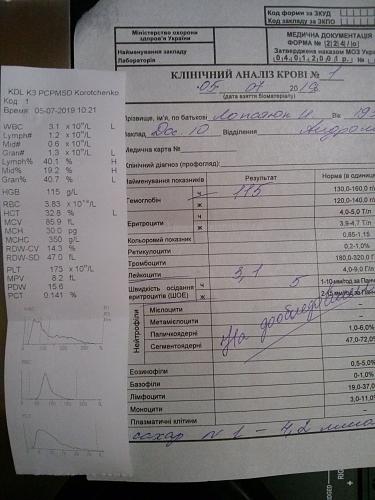 KDL K3 PCPM5D Korotchenko
Код: 1
Время: 05-07-2019 10:21
WBC 3.1 x 10⁹/L L
Lymph# 1.2 x 10⁹/L
Mid# 0.6 x 10⁹/L
Gran# 1.3 x 10⁹/L L
Lymph% 40.1 % H
Mid% 19.2 % H
Gran% 40.7 % L
HGB 115 g/L
RBC 3.83 x 10¹²/L
HCT 32.8 % L
MCV 85.9 fL
MCH 30.0 pg
MCHC 350 g/L
RDW-CV 14.3 %
RDW-SD 47.0 fL
PLT 173 x 10⁹/L
MPV 8.2 fL
PDW 15.6
PCT 0.141 %
WBC
RBC
PLT
Код форми за ЗКУД
Код закладу за ЗКПО
Міністерство охорони
здоров'я України
Найменування закладу
Лабораторія
МЕДИЧНА ДОКУМЕНТАЦІЯ
ФОРМА № 224/о
Затверджена наказом МОЗ Украї
04.01.2001 р. №
КЛІНІЧНИЙ АНАЛІЗ КРОВІ № 1
05 07 2019
(дата взяття біоматеріалу)
Прізвище, ім'я, по батькові
Відділення
Медична карта №
Клінічний діагноз (профогляд):
Найменування показників Результат Норма (в одиниц
Гемоглобін ч 115 130,0-160,0 г/
ж 120,0-140,0 г/
Еритроцити ч 4,0-5,0 Т/л
ж 3,9-4,7 Т/л
Кольоровий показник 0,85-1,15
Ретикулоцити 0,2-1,0%
Тромбоцити 180,0-320,0 Г
Лейкоцити 3,1 4,0-9,0 Г/л
Швидкість осідання
еритроцитів (ШОЕ) ч 5 1-10 мм/год за Панч
ж 2-15 мм/год за Панч
Нейтрофіли
Мієлоцити
Метамієлоцити
Паличкоядерні 1,0-6,0%
Сегментоядерні 47,0-72,0
Еозинофіли 0,5-5,0%
Базофіли 0-1,0%
Лімфоцити 19,0-37,0
Моноцити 3,0-11,0
Плазматичні клітини
сахар N 1 – 4,2